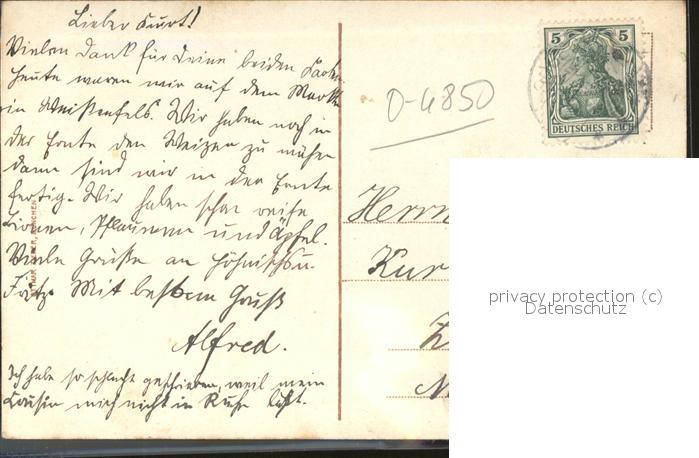 Lieber Kurt!
Vielen Dank für Deine beiden Karten
heute waren wir auf dem Markte
in Weißenfels. Wir haben noch in
der Ernte den Weizen zu mähen
dann sind wir in der Ernte
fertig. Wir haben schon reife
Birnen, Pflaumen und Äpfel.
Viele Grüße an u.
Fritz Mit bestem Gruß
Alfred.
Ich habe so schlecht geschrieben, weil mein
Cousin mich nicht in Ruhe läßt.
0-4850
5 5
DEUTSCHES REICH
Herrn
Kur
privacy protection (c)
Datenschutz